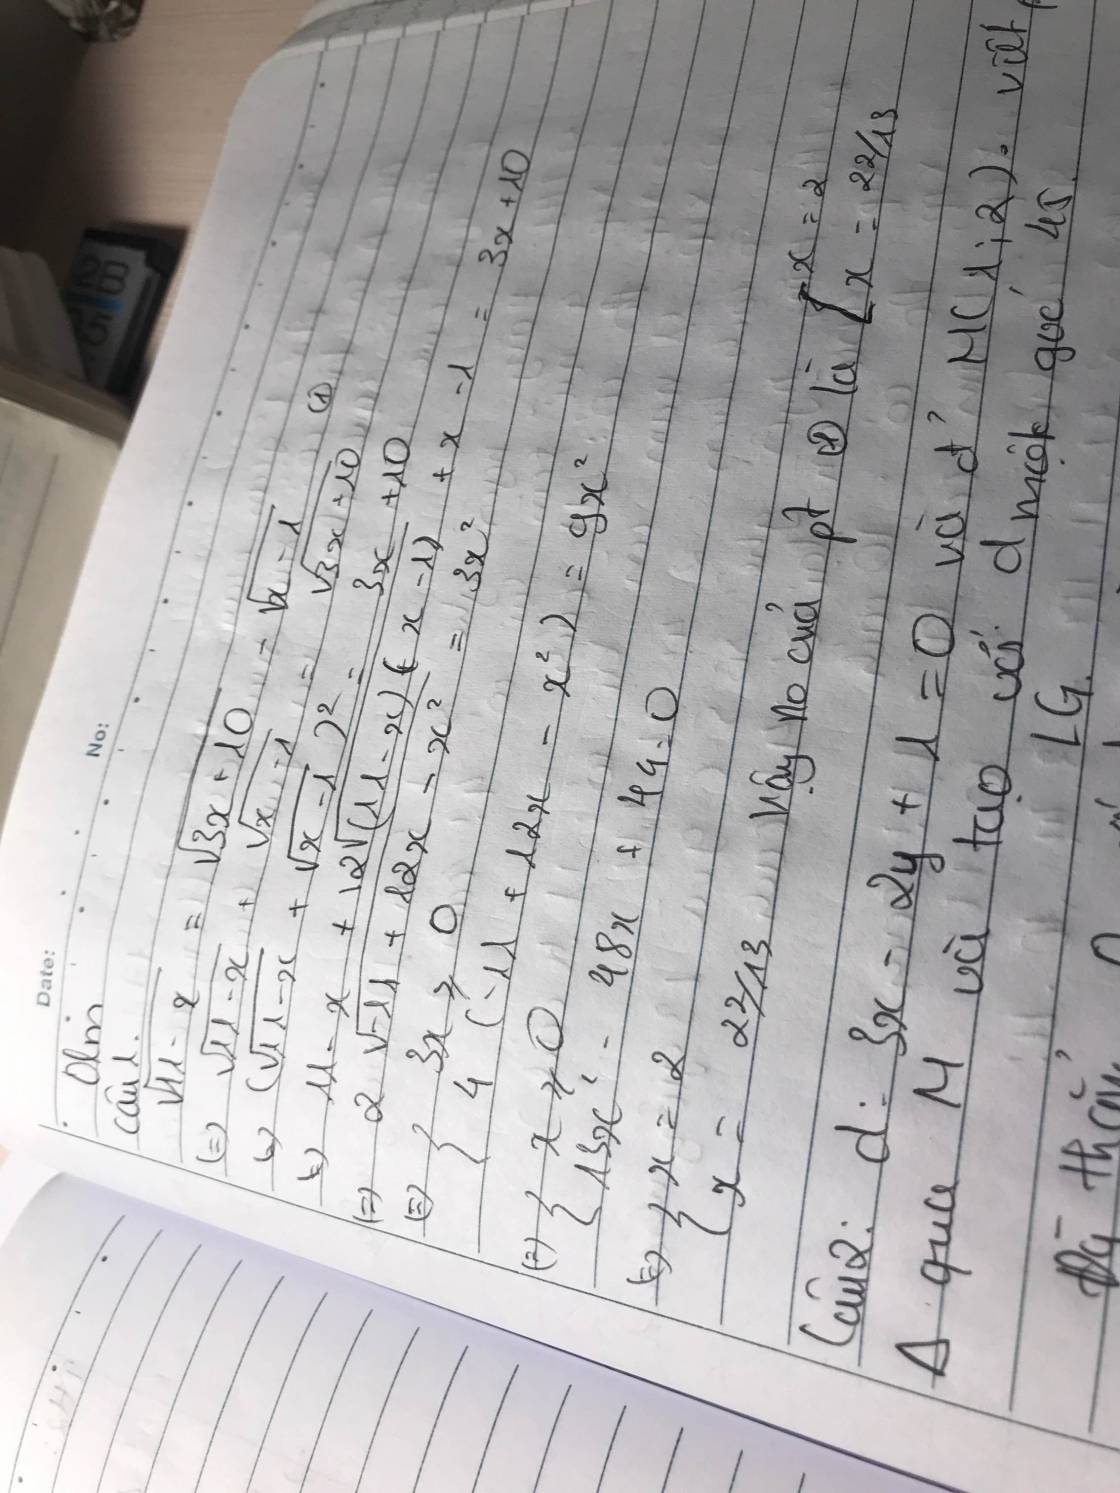 Date:
No:
Olm
câu 1.
√11-x = √3x+10 - √x-1
(=) √11-x + √x-1 = √3x+10 (1)
(=) (√11-x + √x-1)² = 3x+10
(=) 11-x + 2√(11-x)(x-1) + x-1 = 3x+10
(=) 2√-11+12x-x² = 3x
(=) { 3x ≥ 0
4(-11+12x-x²) = 9x²
(=) { x ≥ 0
13x² - 48x + 44=0
(=) { x = 2
x = 22/13 Vậy no của pt (1) là [ x = 2
x = 22/13
Câu 2: d: 3x - 2y + 1 = 0 và đ' M(1;2). viết
Δ qua M và tạo với d một góc 45.
LG.